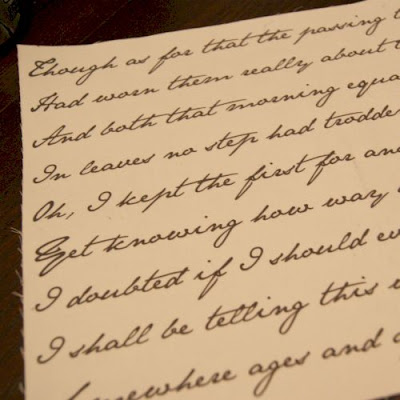 Though as for that the passing
Had worn them really about
And both that morning equa
In leaves no step had trodde
Oh, I kept the first for an
Yet knowing how way
I doubted if I should ev
I shall be telling this
Somewhere ages and